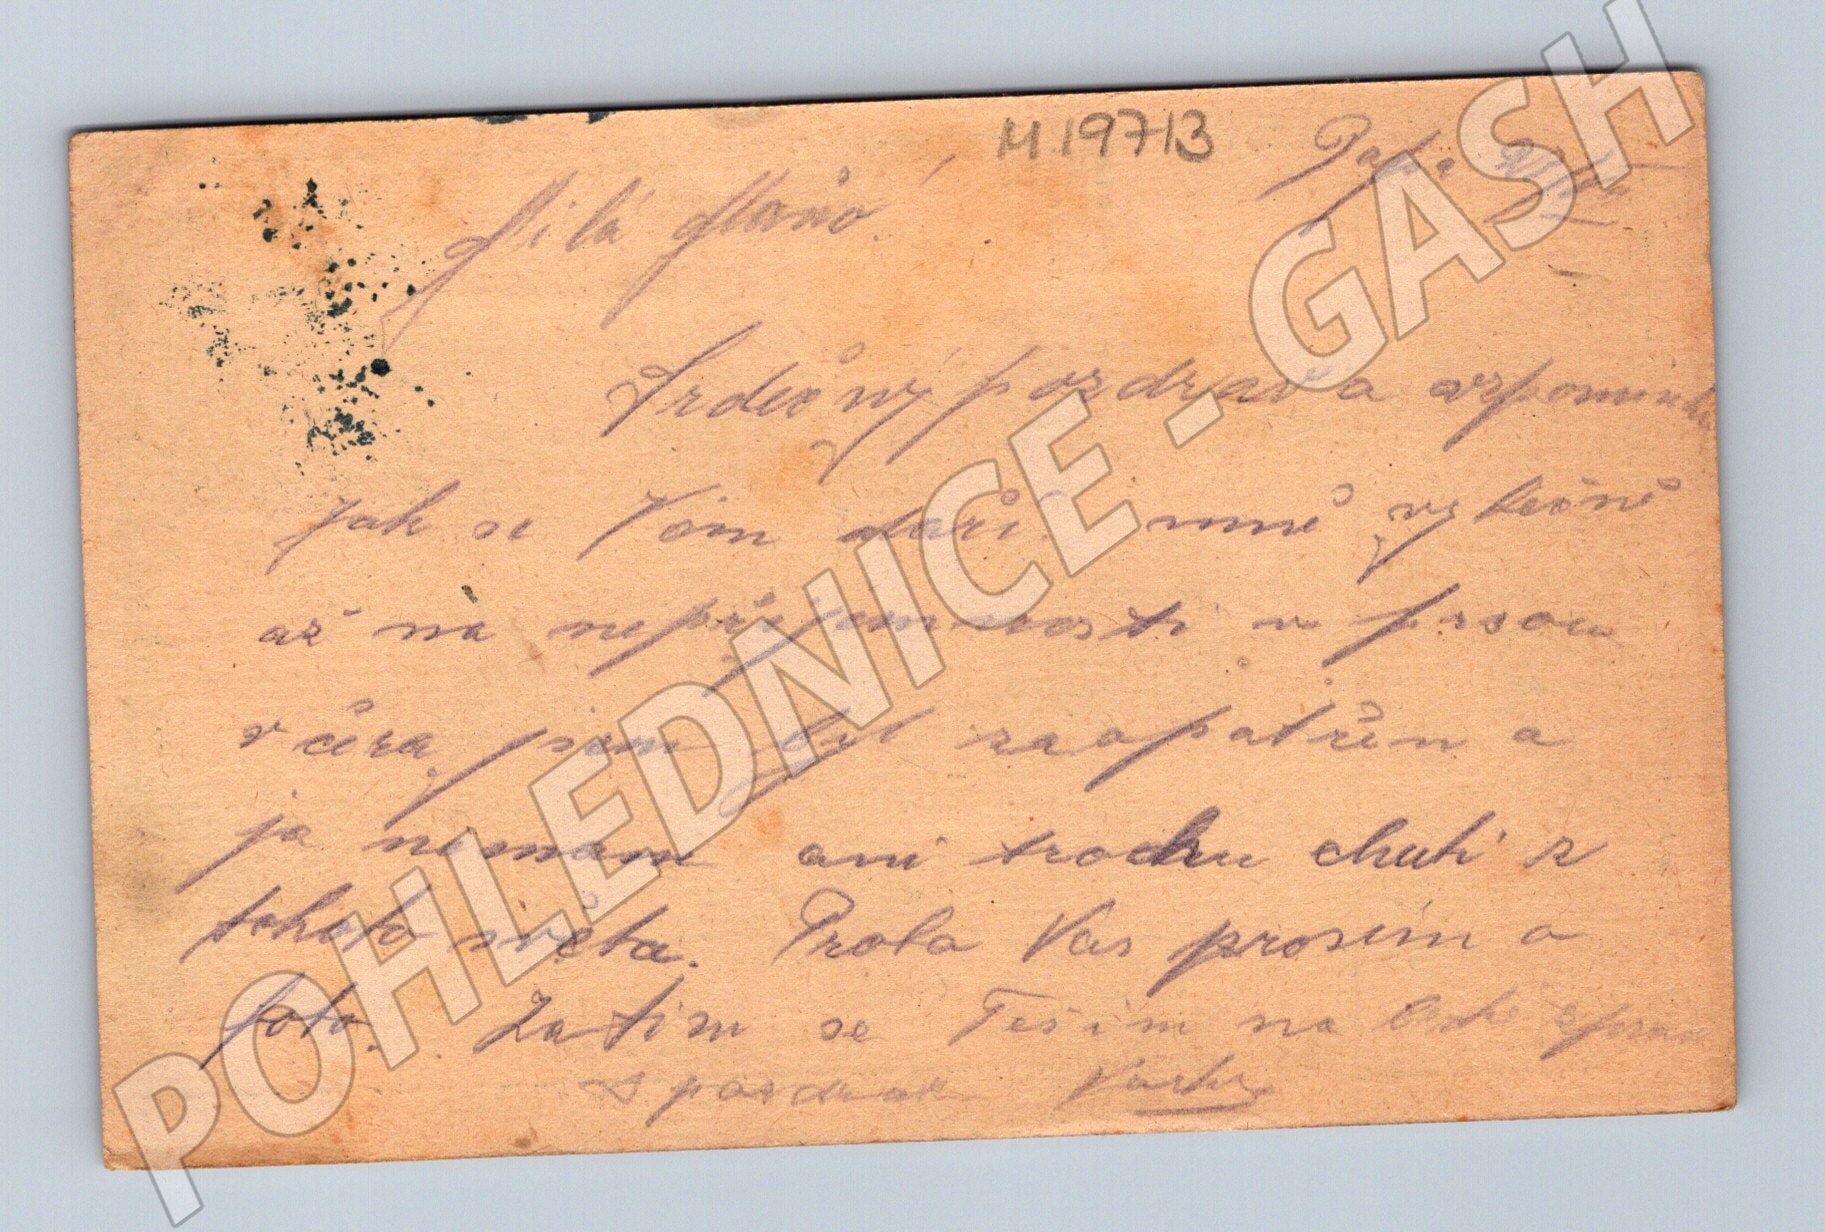 M 19713
Milá
Srdečný pozdrav a vzpomínka
Jak se Vám daří. mně výtečně
až na nepříjemnosti v prsou
včera jsem byl zaopatřen a
já nemám ani trochu chuti z
tohoto světa. Prota Vas prosím o
foto. Zatím se Těším na
S pozdrav
POHLEDNICE - GASH